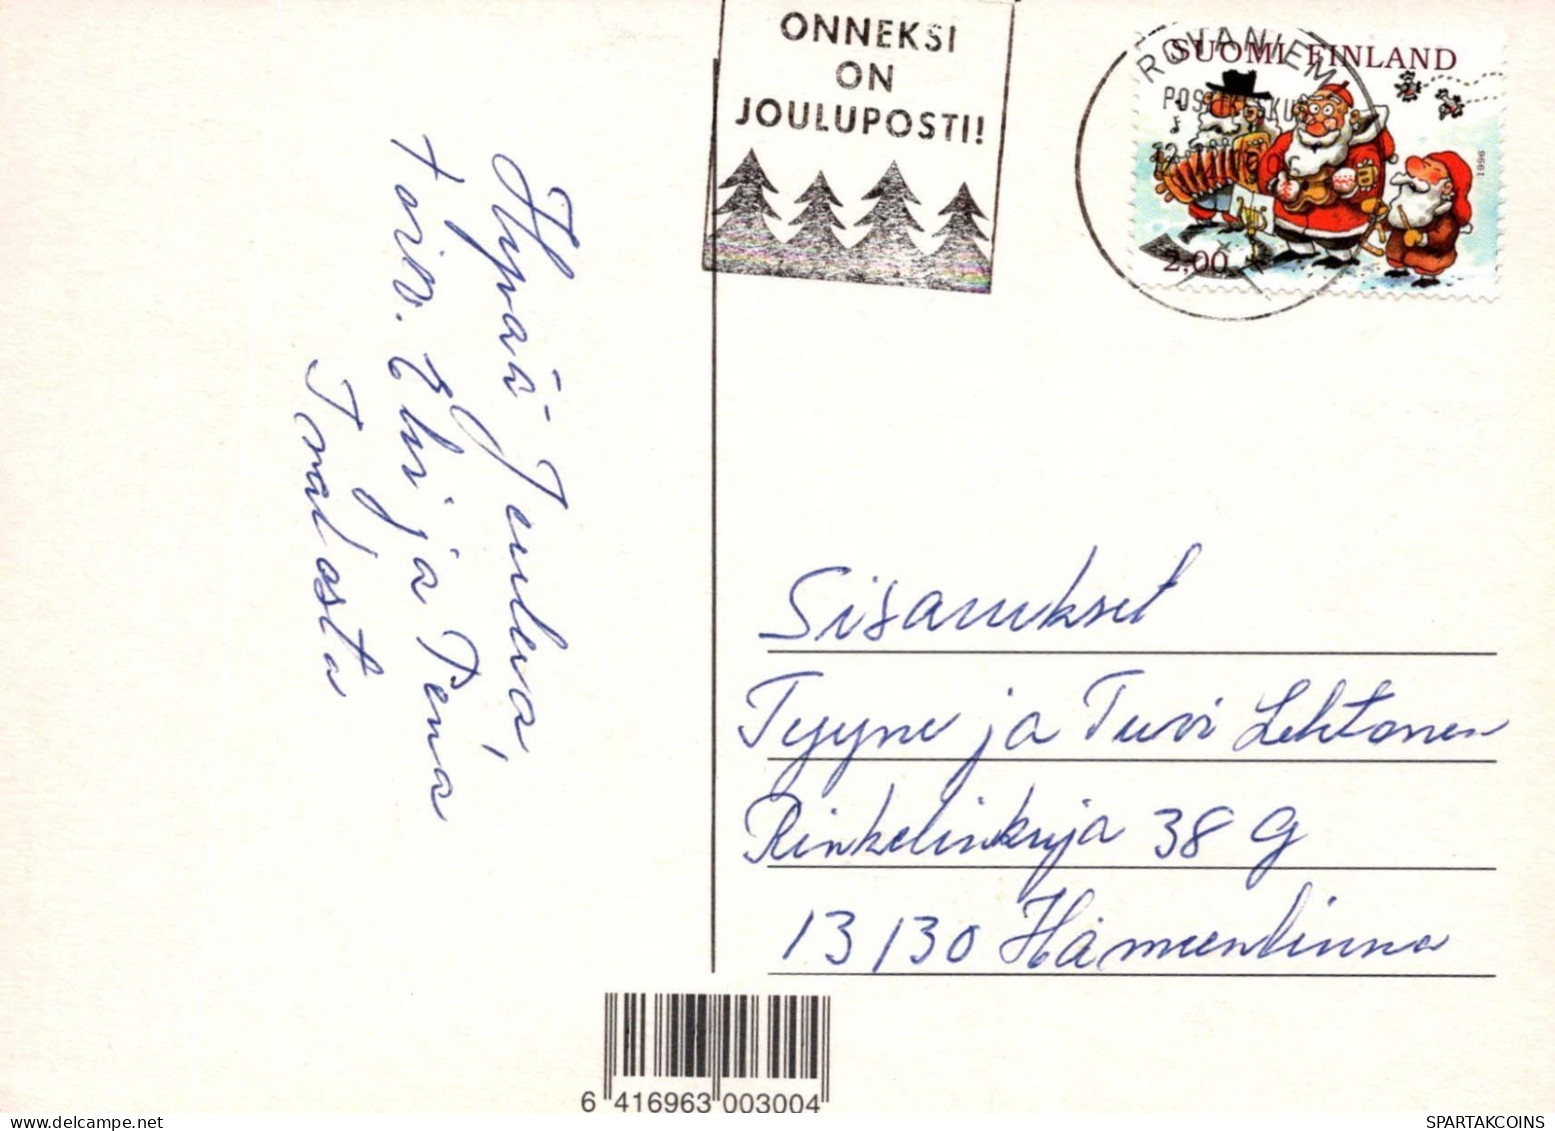 ONNEKSI
ON
JOULUPOSTI!
ROVANIEMI
POSTIKESKUS
SUOMI FINLAND
1996
2,00
Hyvää Joulua,
toiv. Elvi ja Pena
Inal osta
Sisarukset
Tyyne ja Tuvi Lehtonen
Rinkelinkuja 38 G
13130 Hämeenlinna
6 416963 003004
SPARTAKCOINS